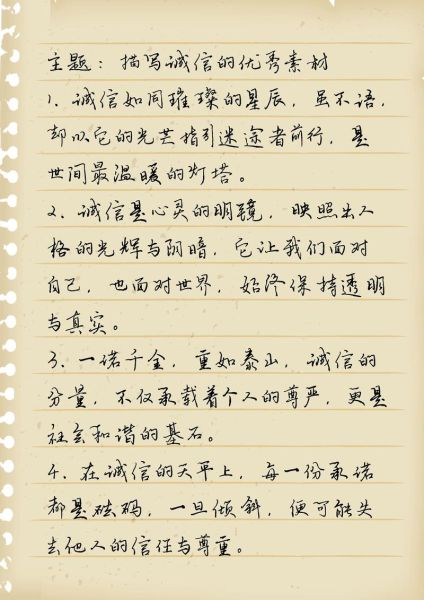 主题：描写诚信的优秀素材
1、诚信如同璀璨的星辰，虽不语，
却以它的光芒指引迷途者前行，是
世间最温暖的灯塔。
2、诚信是心灵的明镜，映照出人
格的光辉与阴暗，它让我们面对
自己，也面对世界，始终保持透明
与真实。
3、一诺千金，重如泰山，诚信的
分量，不仅承载着个人的尊严，更是
社会和谐的基石。
4、在诚信的天平上，每一份承诺
都是砝码，一旦倾斜，便可能失
去他人的信任与尊重。